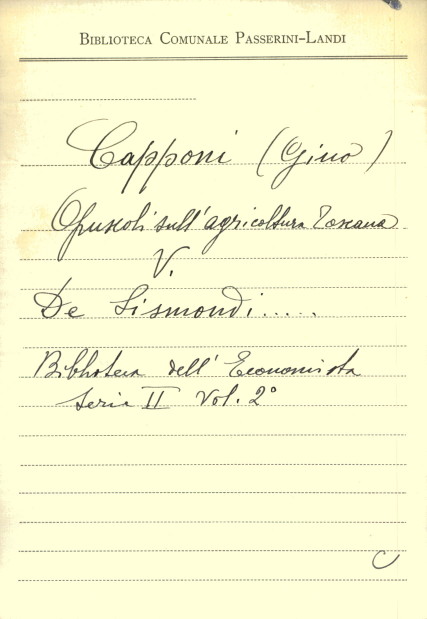 BIBLIOTECA COMUNALE PASSERINI-LANDI
Capponi (Gino)
Opuscoli sull'agricoltura Toscana
V.
De Sismondi.....
Biblioteca dell'Economista
Serie II Vol. 2°
C